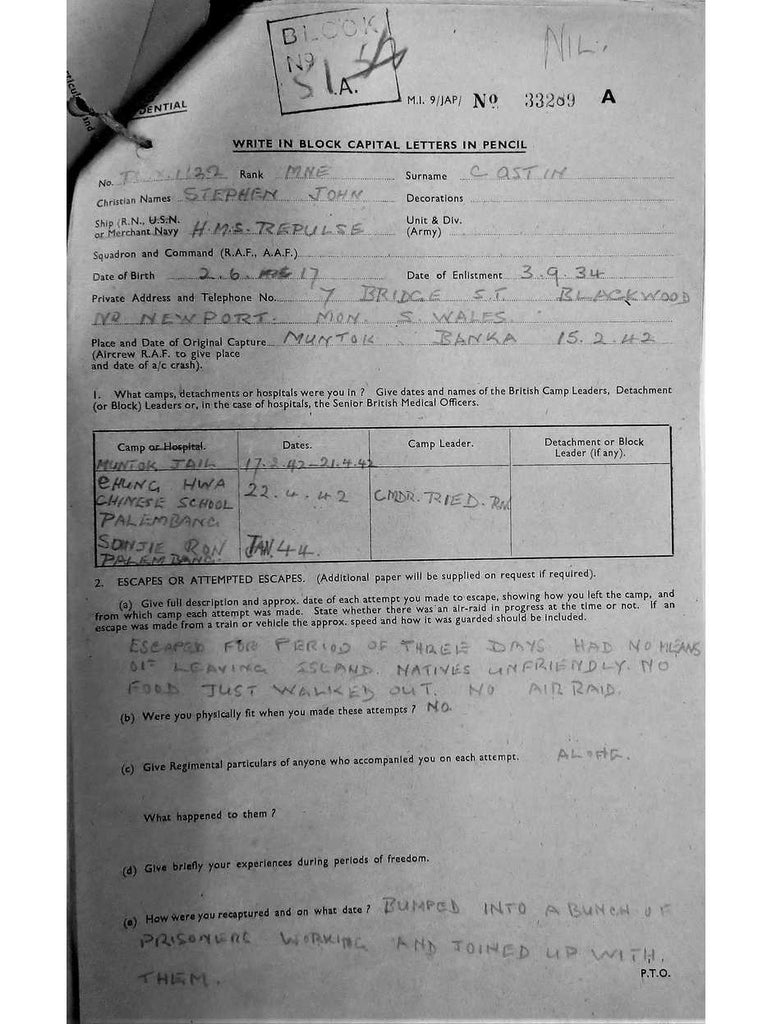 BLOCK
NIL.
Nº
S1.A.
DENTIAL
M.I. 9/JAP/ Nº 33289 A
WRITE IN BLOCK CAPITAL LETTERS IN PENCIL
No. X.1132 Rank MNE Surname COSTIN
Christian Names STEPHEN JOHN Decorations
Ship (R.N., U.S.N. or Merchant Navy H.M.S. REPULSE Unit & Div. (Army)
Squadron and Command (R.A.F., A.A.F.)
Date of Birth 2.6. 17 Date of Enlistment 3.9.34
Private Address and Telephone No. 7 BRIDGE ST. BLACKWOOD
NR NEWPORT. MON. S. WALES.
Place and Date of Original Capture MUNTOK BANKA 15.2.42
(Aircrew R.A.F. to give place
and date of a/c crash).
1. What camps, detachments or hospitals were you in ? Give dates and names of the British Camp Leaders, Detachment
(or Block) Leaders or, in the case of hospitals, the Senior British Medical Officers.
Camp or Hospital. Dates. Camp Leader. Detachment or Block Leader (if any).
MUNTOK JAIL 17.2.42-21.4.42
CHUNG HWA
CHINESE SCHOOL 22.4.42 CMDR. RIED. RN
PALEMBANG
SONJIE RON JAN.44.
PALEMBANG.
2. ESCAPES OR ATTEMPTED ESCAPES. (Additional paper will be supplied on request if required).
(a) Give full description and approx. date of each attempt you made to escape, showing how you left the camp, and
from which camp each attempt was made. State whether there was an air-raid in progress at the time or not. If an
escape was made from a train or vehicle the approx. speed and how it was guarded should be included.
ESCAPED FOR PERIOD OF THREE DAYS HAD NO MEANS
OF LEAVING ISLAND. NATIVES UNFRIENDLY. NO
FOOD JUST WALKED OUT. NO AIR RAID.
(b) Were you physically fit when you made these attempts ? NO.
(c) Give Regimental particulars of anyone who accompanied you on each attempt. ALONE.
What happened to them ?
(d) Give briefly your experiences during periods of freedom.
(e) How were you recaptured and on what date ? BUMPED INTO A BUNCH OF
PRISONERS WORKING AND JOINED UP WITH.
THEM.
P.T.O.